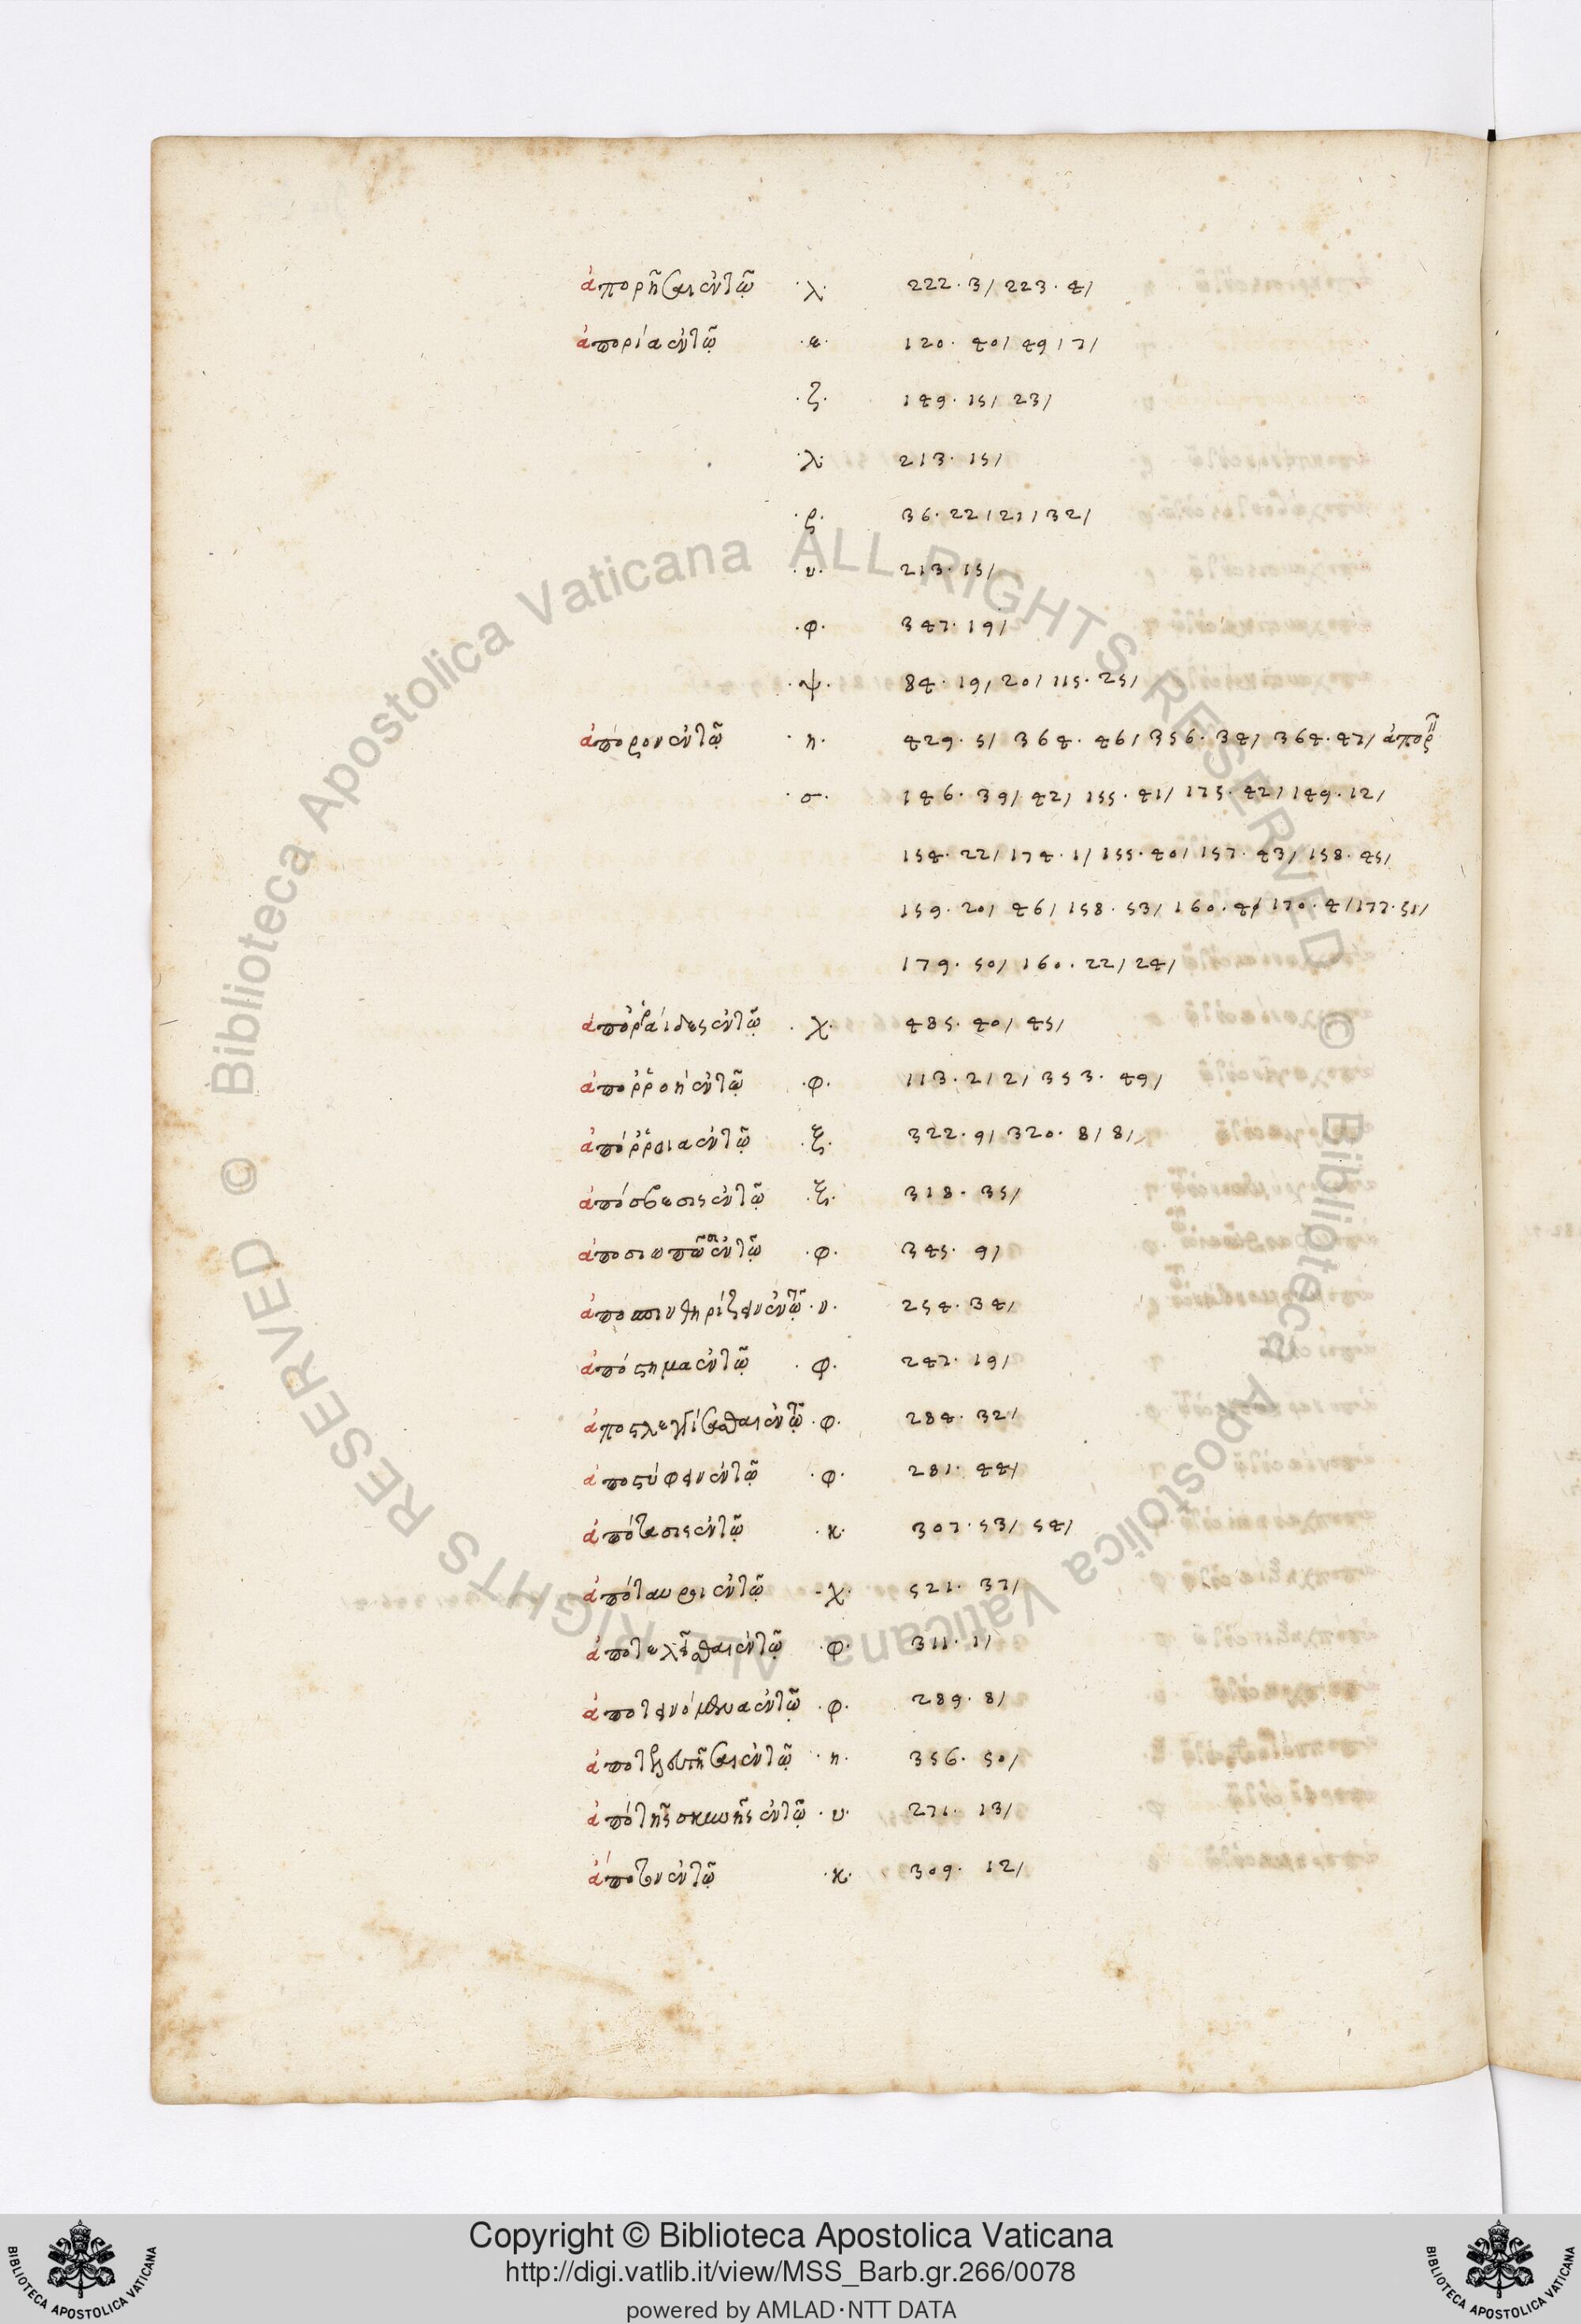 ἀπορῆσαι ἐν τῷ ·λ· 222·3/ 223·4/
ἀπορία ἐν τῷ ·ε· 120· 40/ 49/ 7/
·ζ· 149· 15/ 23/
·λ· 213· 15/
·ρ· 36· 22/ 21/ 32/
·υ· 213· 15/
·φ· 347· 19/
·ψ· 84· 19/ 20/ 115· 25/
ἄπορον ἐν τῷ ·η· 429· 5/ 364· 46/ 356· 34/ 364· 47/
·σ· 146· 39/ 42/ 155· 41/ 175· 42/ 149· 12/
154· 22/ 174· 1/ 155· 40/ 157· 43/ 158· 45/
159· 20/ 46/ 158· 53/ 160· 170· 4/ 177· 51/
179· 50/ 160· 22/ 24/
ἐν τῷ ·χ· 485· 40/ 45/
ἀποῤῥοὴ ἐν τῷ ·φ· 113· 2/ 2/ 353· 49/
ἀπόῤῥοια ἐν τῷ ·ξ· 322· 9/ 320· 8/ 8/
ἀπόσβεσις ἐν τῷ ·ξ· 318· 35/
ἐν τῷ ·φ· 345· 9/
ἀποσπινθηρίζειν ἐν τῷ ·ν· 254· 34/
ἀπόστημα ἐν τῷ ·φ· 247· 19/
ἀποστλεγγίσασθαι ἐν τῷ ·φ· 284· 32/
ἀποστύφειν ἐν τῷ ·φ· 281· 44/
ἀπότασις ἐν τῷ ·κ· 307· 53/ 54/
ἀπόταυροι ἐν τῷ ·χ· 521· 37/
ἀποτελεῖσθαι ἐν τῷ ·φ· 311· 1/
ἀποτεινόμενα ἐν τῷ ·φ· 289· 8/
ἐν τῷ ·η· 356· 50/
ἀπὸ τῆς σκευῆς ἐν τῷ ·υ· 271· 13/
ἐν τῷ ·κ· 309· 12/
© Biblioteca Apostolica Vaticana ALL RIGHTS RESERVED
© Biblioteca Apostolica Vaticana ALL RIGHTS RESERVED
Copyright © Biblioteca Apostolica Vaticana
http://digi.vatlib.it/view/MSS_Barb.gr.266/0078
powered by AMLAD·NTT DATA
BIBLIOTECA APOSTOLICA VATICANA
BIBLIOTECA APOSTOLICA VATICANA